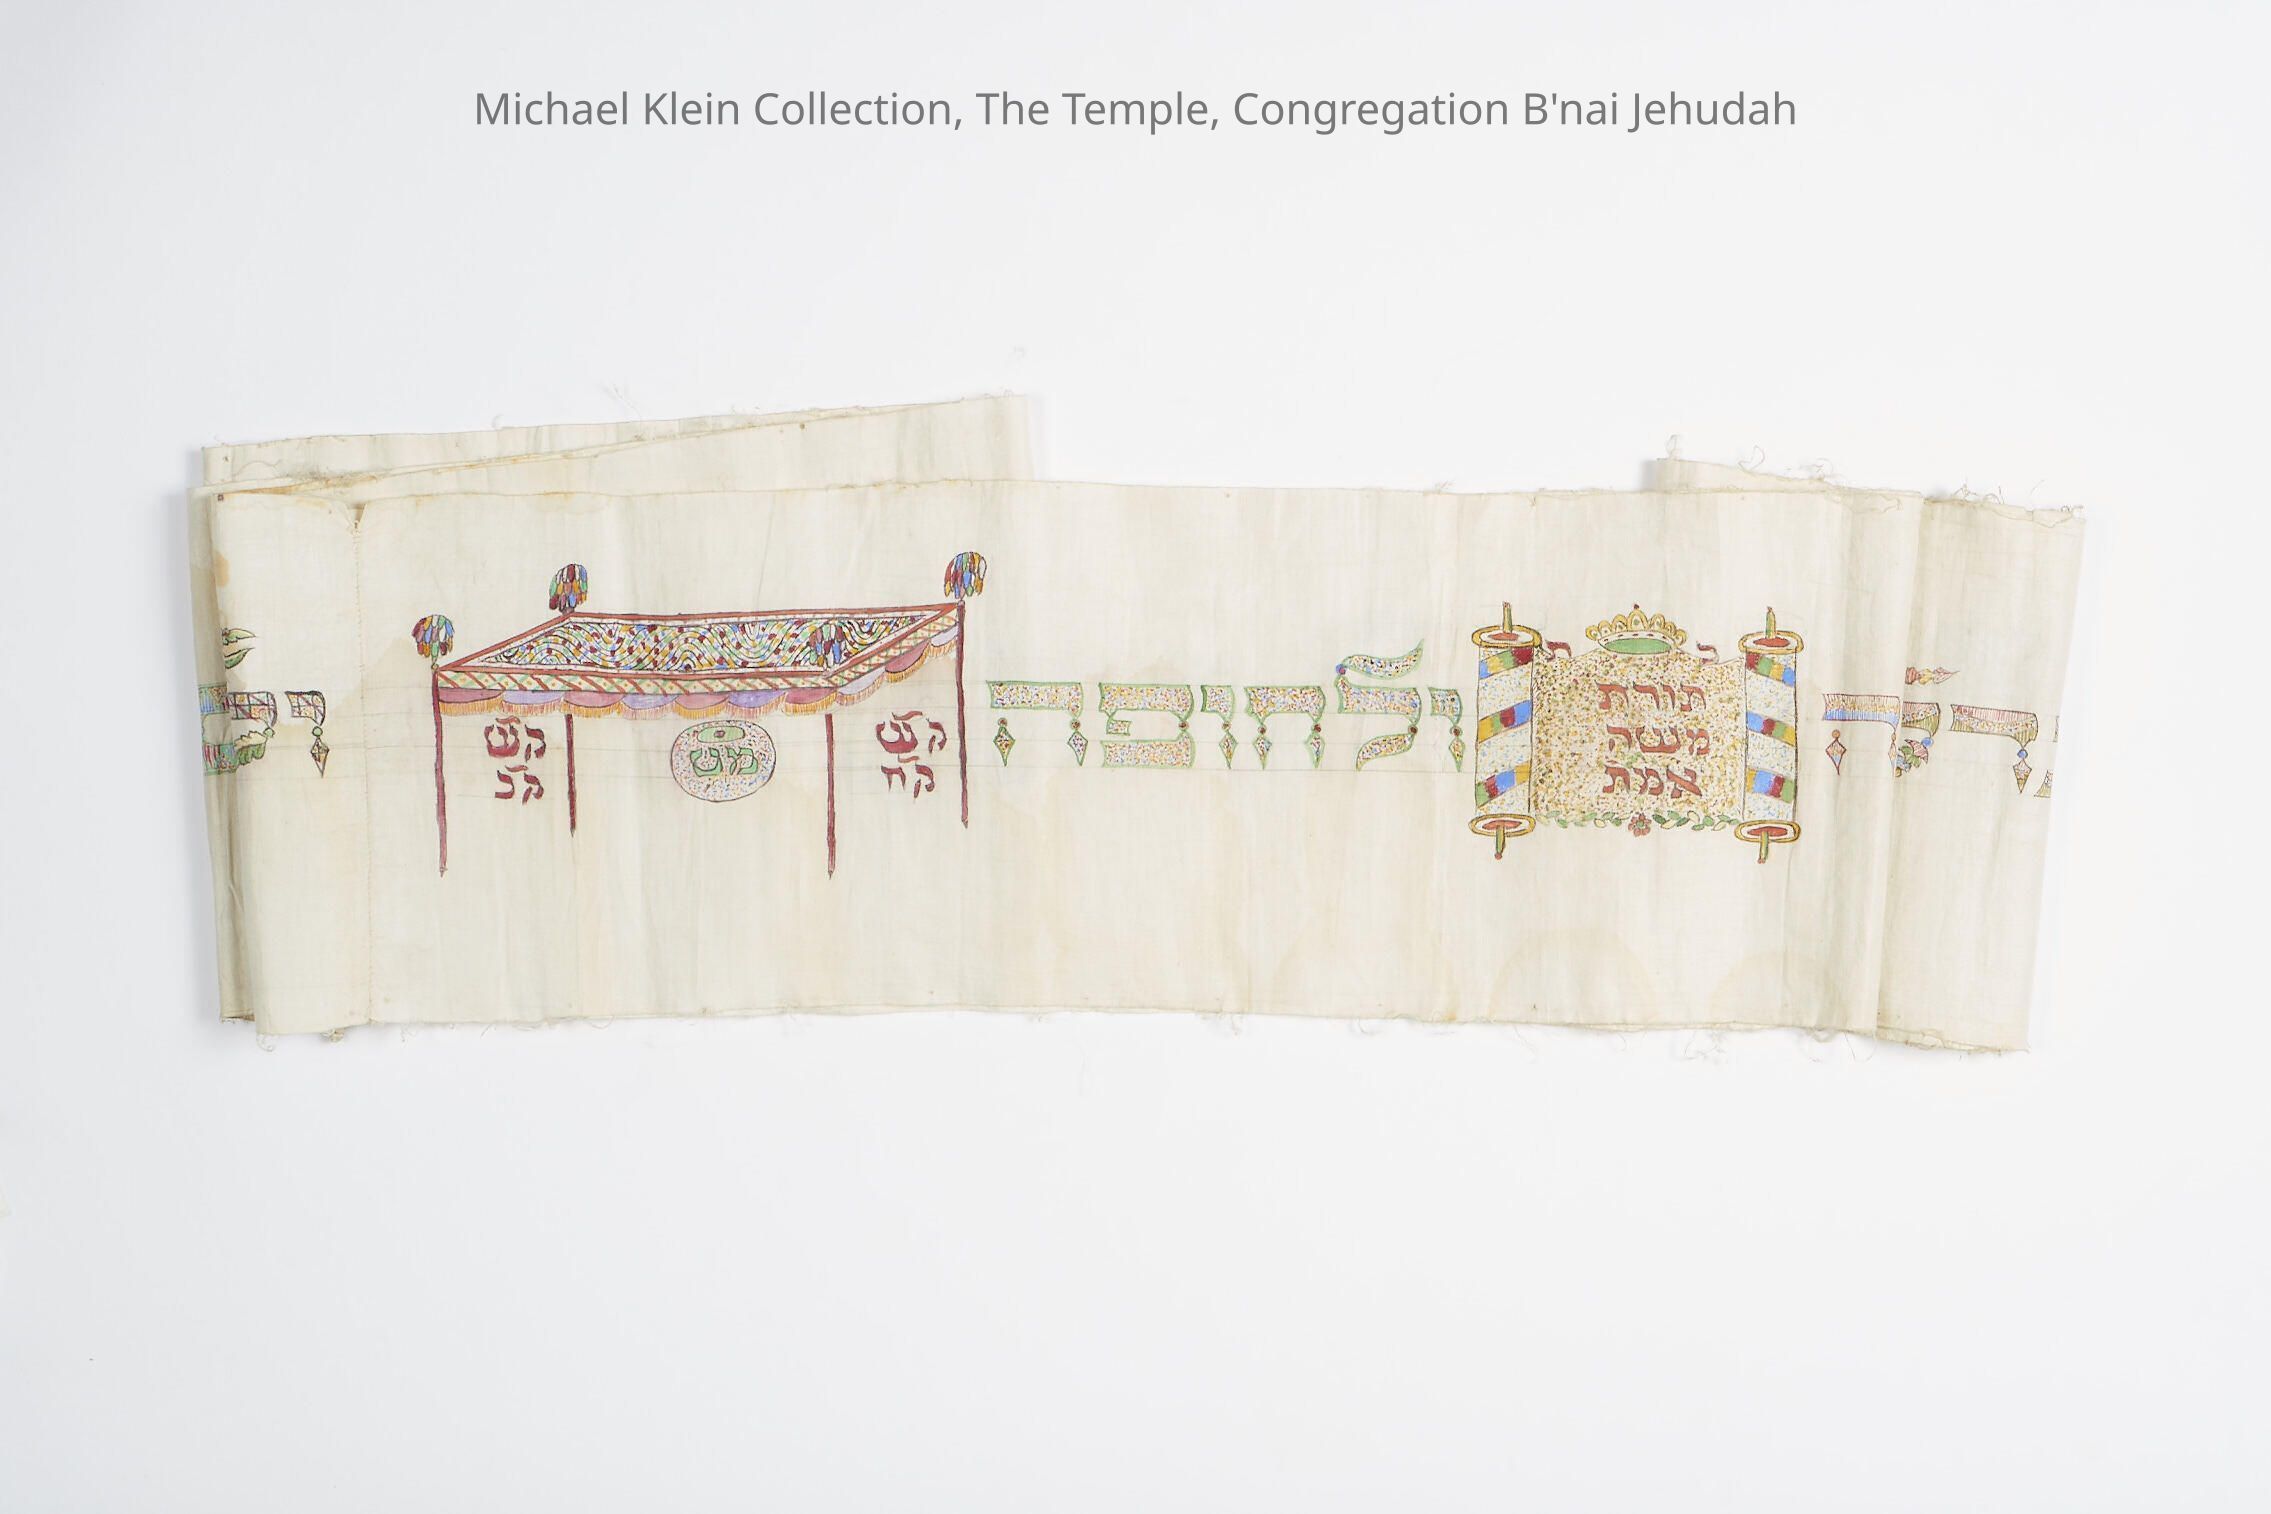 Michael Klein Collection, The Temple, Congregation B'nai Jehudah
כ ת
תורת
משה
אמת
ולחופה
ק״ש
ק״ח
ק״ש
ק״כ